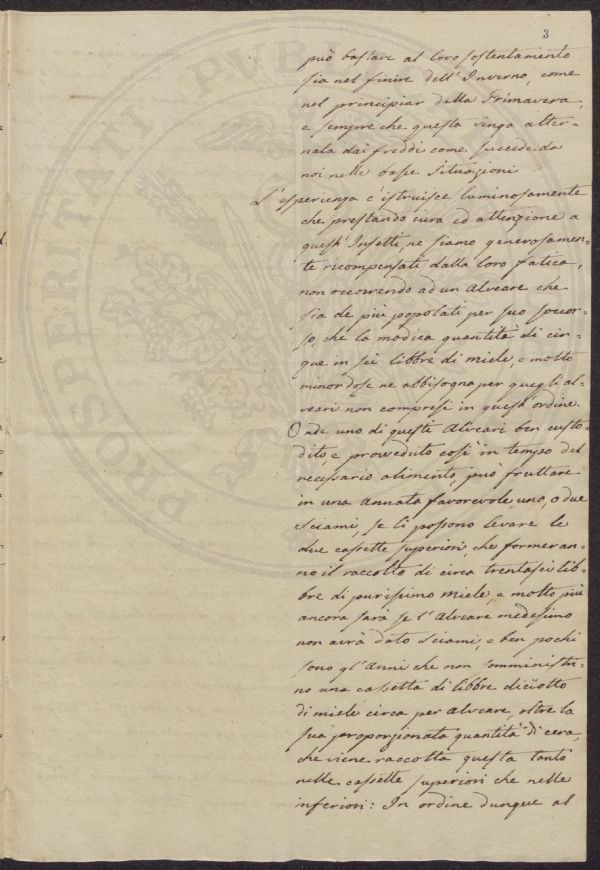 3
può bastare al loro sostentamento
sia nel finire dell' Inverno, come
nel principiar della Primavera,
e sempre che questa venga alter=
nata dai freddi come succede da
noi nelle basse situazioni
L'esperienza c'istruisce luminosamente
che prestando cura ed attenzione a
questi Insetti, ne siamo generosamen=
te ricompensati dalla loro fatica,
non occorrendo ad un alveare che
sia de più popolati per suo soccor=
so, che la modica quantità di cin=
que in sei libbre di miele, e molto
minor dose ne abbisogna per quegli al=
veari non compresi in quest'ordine.
Onde uno di questi Alveari ben custo=
dito, e proveduto così in tempo del
necessario alimento, può fruttare
in una annata favorevole, uno, o due
Sciami, se li possono levare le
due cassette superiori, che formeran=
no il raccolto di circa trentasei lib=
bre di purissimo miele, e molto più
ancora sarà se l'Alveare medesimo
non avrà dato Sciami, e ben pochi
sono gl'Anni che non somministri=
no una cassetta di libbre dicìotto
di miele circa per alveare, oltre la
sua proporzionata quantità di cera,
che viene raccolta questa tanto
nelle cassette superiori che nelle
inferiori: In ordine dunque al
PROSPERITATI PVB